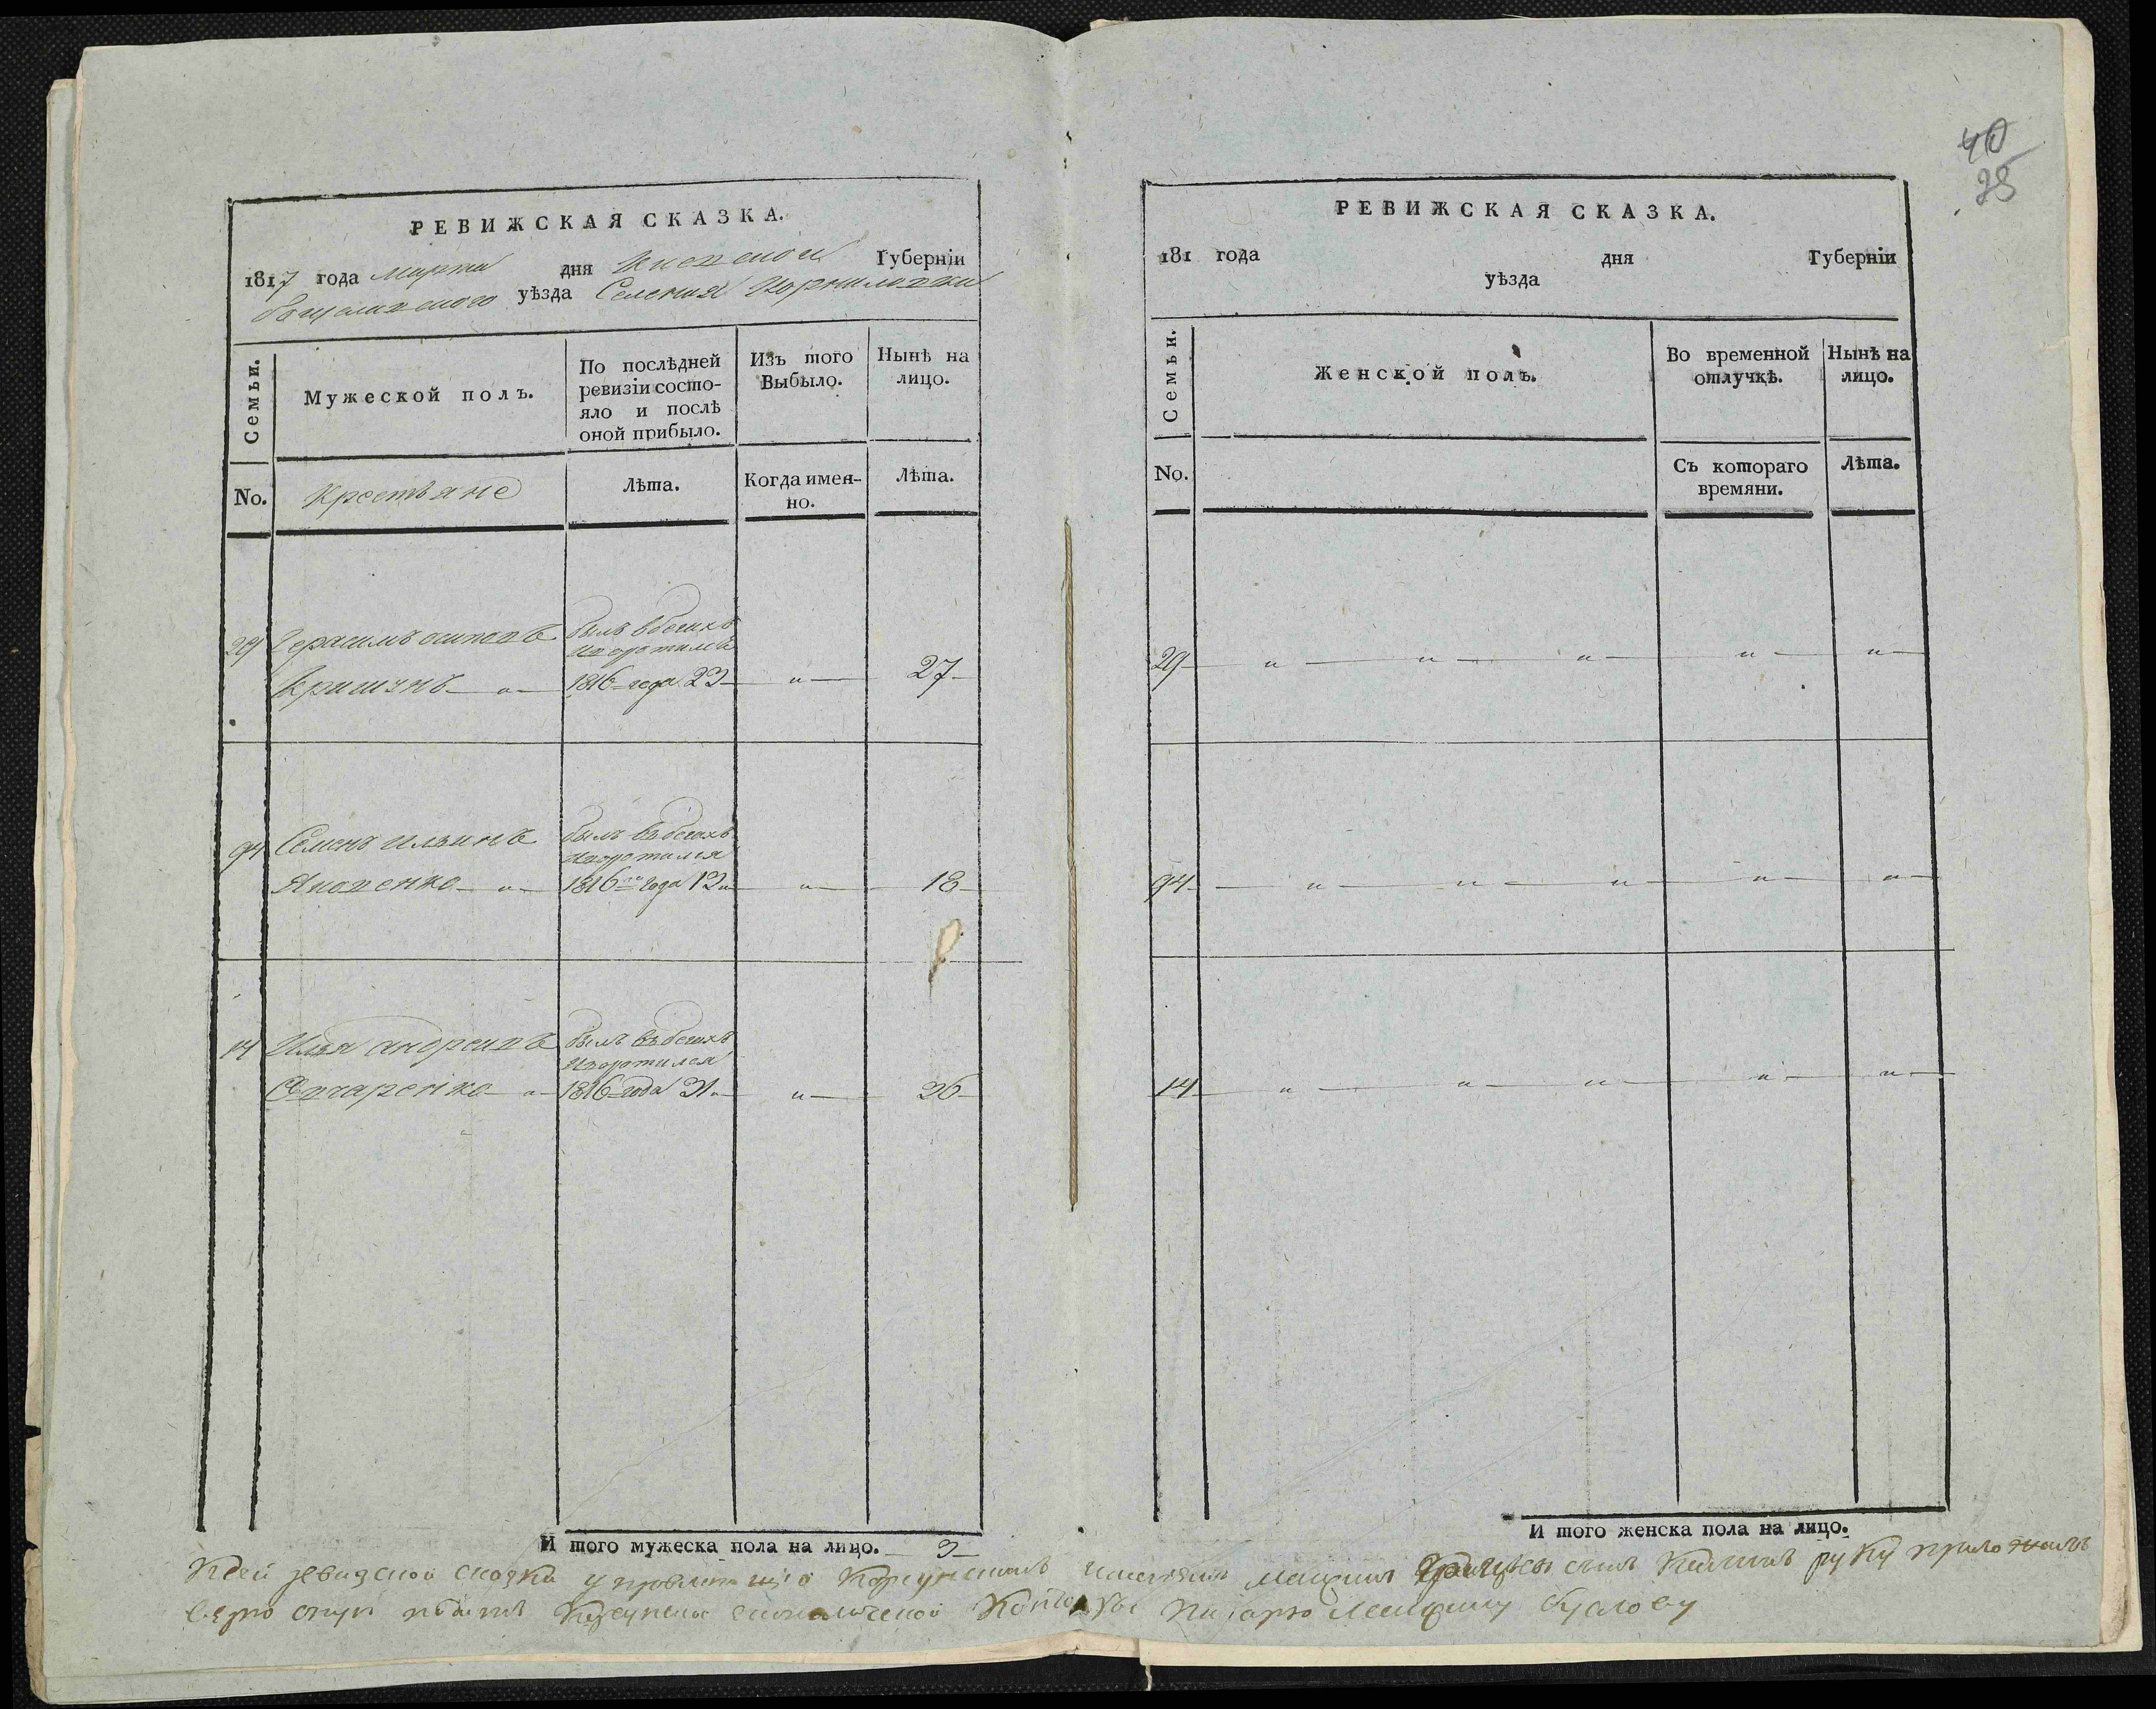 РЕВИЖСКАЯ СКАЗКА.
1817 года марта дня Киевской Губерніи
богуславского уѣзда Селения Корниловки
Семьи.
Мужеской полъ.
По послѣдней ревизіи состо-
яло и послѣ оной прибыло.
Изъ того Выбыло.
Нынѣ на лицо.
No.
Крестьяне
Лѣта.
Когда имен-
но.
Лѣта.
29 Герасимъ осиповъ былъ вбегахъ
воротился
1816 года 23 " 27
94 Семенъ ильинъ былъ вбегахъ
воротился
Яковенко " 1816 года 12 " 18
14 Илья андреивъ былъ вбегахъ
воротился
Овчаренко " 1816 года 31 " 36
И того мужеска пола на лицо. 3
40
38
РЕВИЖСКАЯ СКАЗКА.
181 года дня Губерніи
уѣзда
Семьи.
Женской полъ.
Во временной отлучкѣ.
Нынѣ на лицо.
No.
Съ котораго времяни.
Лѣта.
29 " " " " "
94 " " " " "
14 " " " " "
И того женска пола на лицо.
Ксей ревизской сказки руку приложилъ